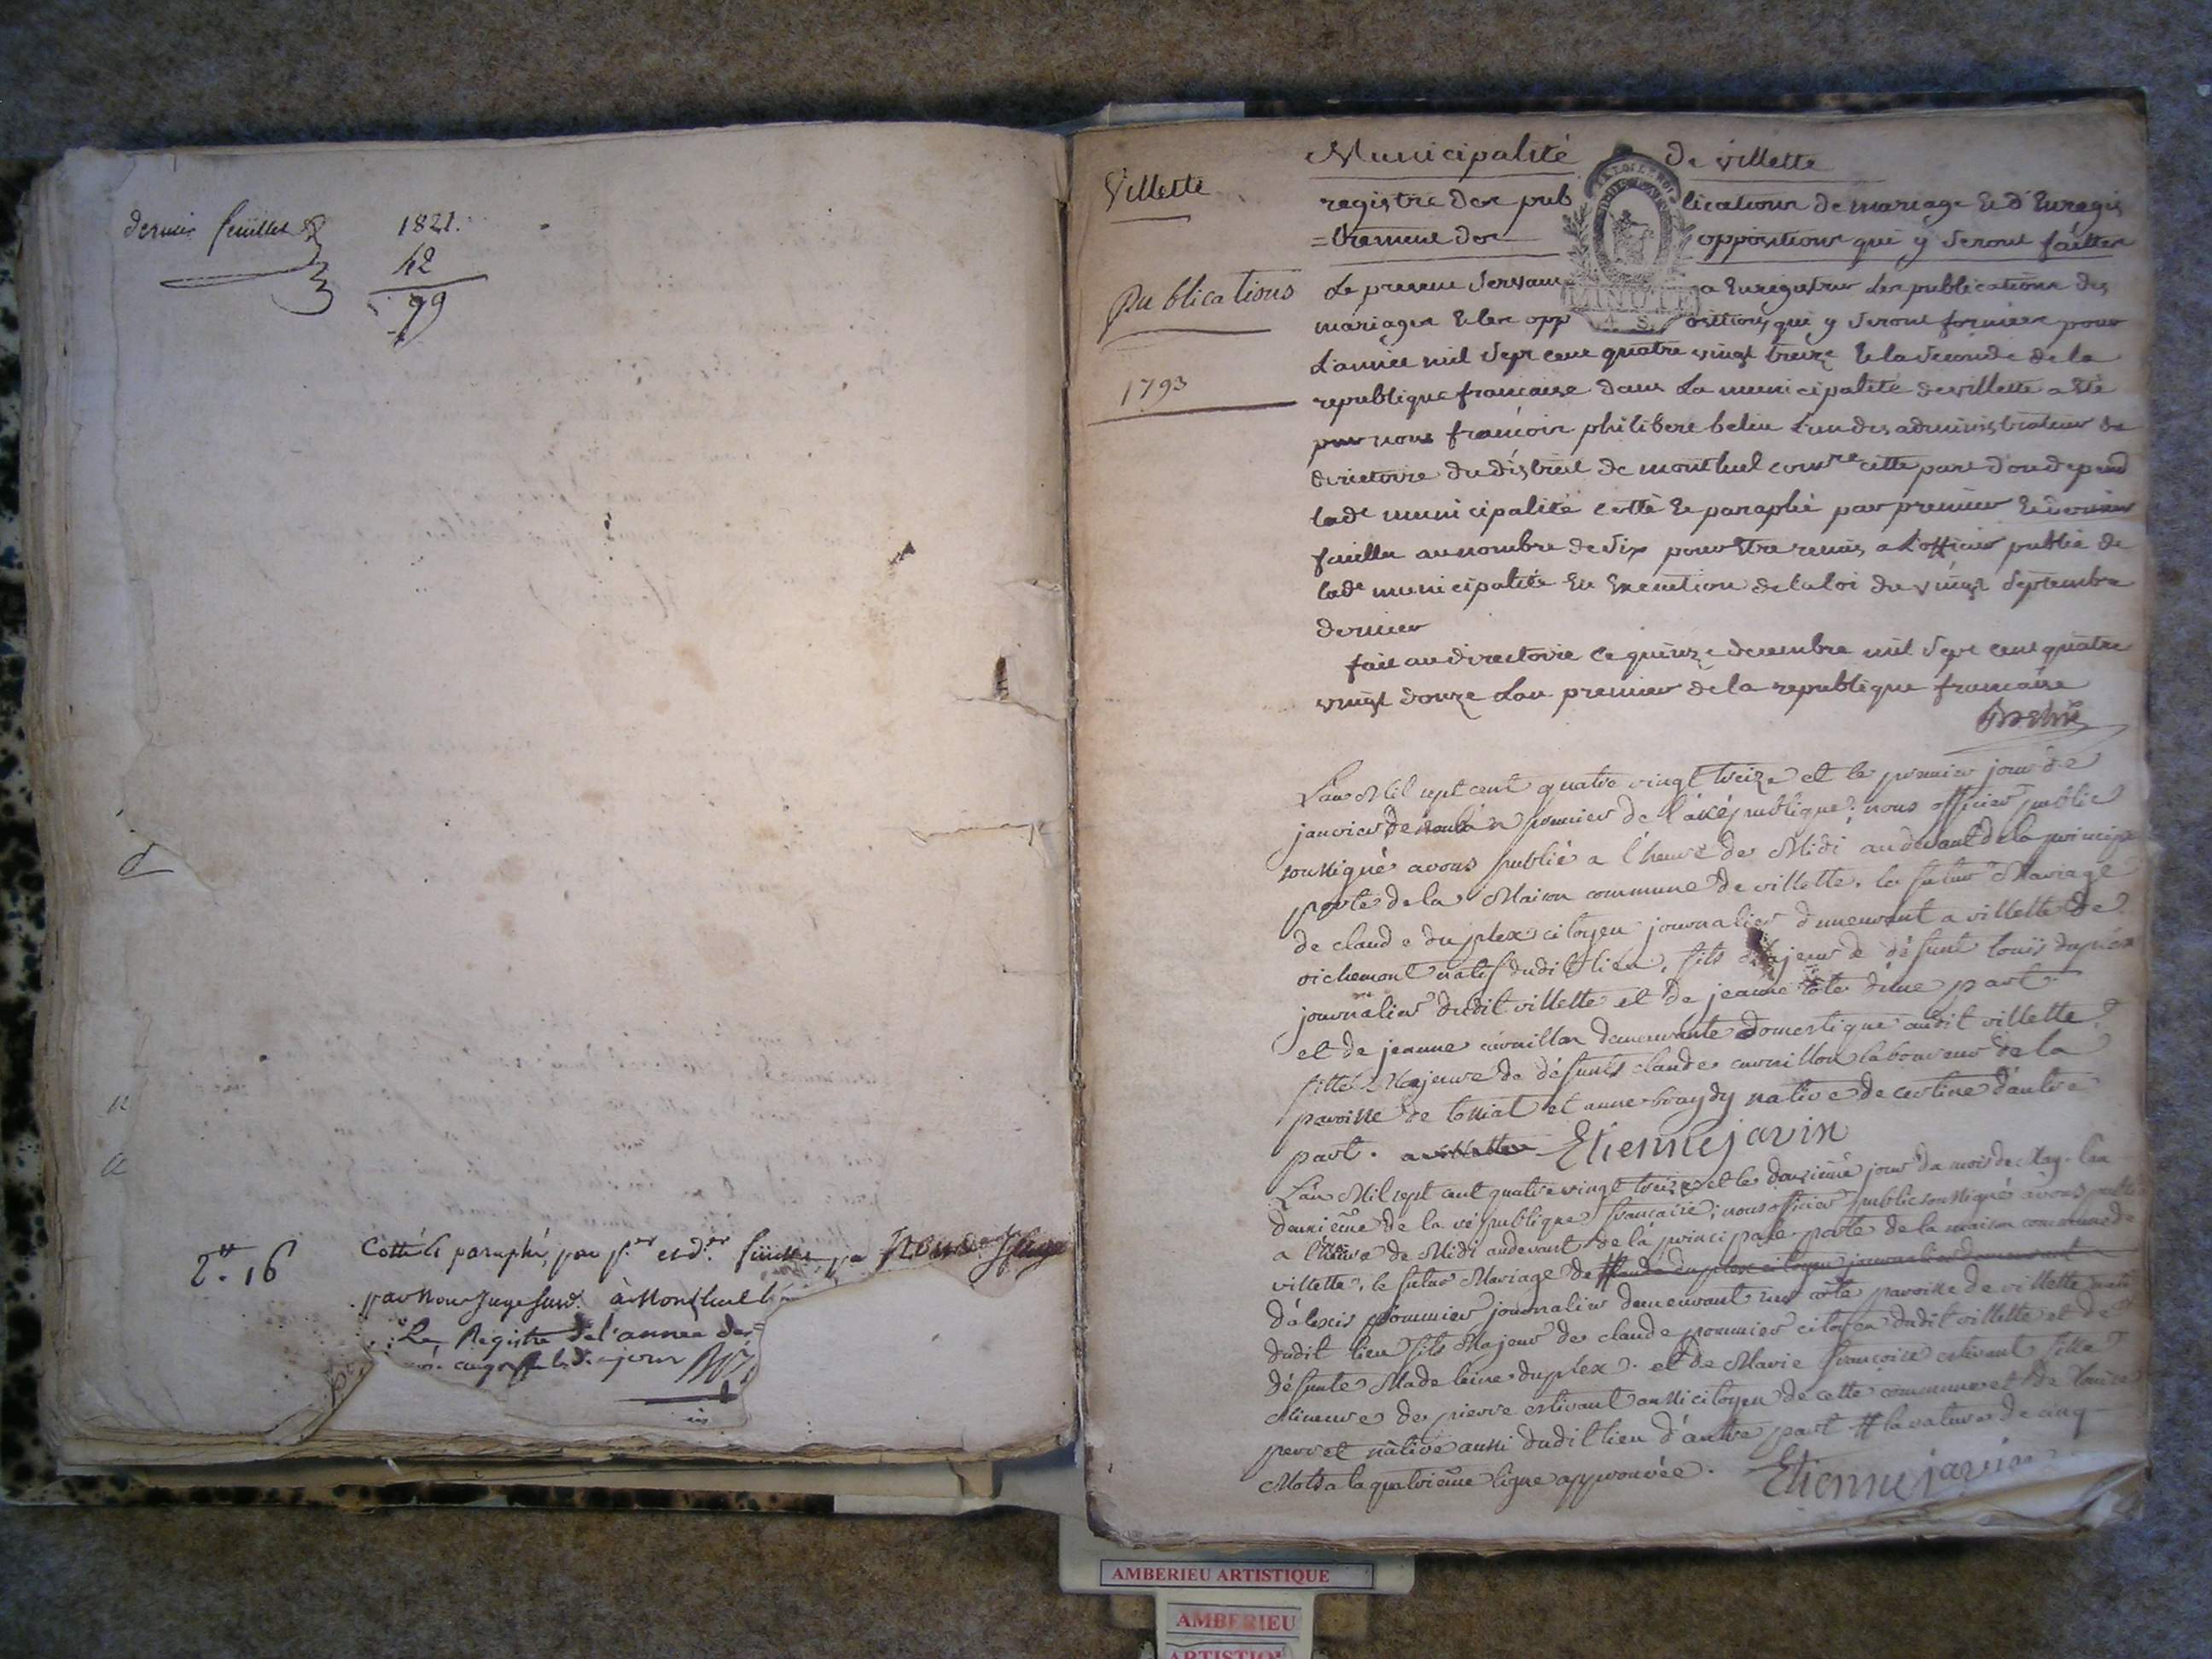 dernier feuillet
1821.
42
99
d
n
a
2.tt 16
Cotté et paraphé, par p.er et d.er feuillet, par Nous Juge
par Nous Juge à Montluel
Le Registre de l'année
ce jour
Villette
Publications
1793
Municipalité de villette
registre des publications de mariage et d'Enregis
=trement des oppositions qui y seront faittes
Le present servant a Enregistrer les publications des
mariages et les oppositions qui y seront formées pour
L'année mil sept cent quatre vingt treize et la seconde de la
republique francaise dans La municipalité de villette a été
par nous francois philibert belin L'un des administrateurs du
directoire du district de montluel cette part d'ou depend
lade municipalité cotté et paraphé par premier et dernier
feuillet au nombre de six pour etre remis a L'officier public de
lade municipalité en Execution de la loi du vingt Septembre
dernier
fait au directoire ce quinze decembre mil sept cent quatre
vingt douze L'an premier de la republique francaise
Belin
L'an Mil sept cent quatre vingt treize et le premier jour de
janvier de premier de la république; nous officier public
soussigné avons publié a l'heure de Midi au devant de la principa
porte de la Maison commune de villette. le futur Mariage
de claude duplex citoyen journalier demeurant a villette de
richemont natif dudit lieu, fils Majeur de défunt louïs duplex
journalier dudit villette et de jeanne cote d'une part
et de jeanne demeurante domestique audit villette
fille Majeure de défunts claude laboureur de la
paroisse de tossiat et anne native de certine d'autre
part. Etienne javin
L'an Mil sept cent quatre vingt treize et le douzième jour du mois de May. l'an
deuxième de la république française; nous officier public soussigné avons publié
a l'heure de Midi au devant de la principale porte de la maison commune de
villette, le futur Mariage de # claude duplex citoyen journalier demeurant a
d'alexis pommier journalier demeurant sur côte paroisse de villette natif
dudit lieu fils Majeur de claude pommier citoyen dudit villette et de
défunte Madeleine duplex. et de Marie françoise estivant fille
Mineure de pierre estivant aussi citoyen de cette commune et de Marie
perret native aussi dudit lieu d'autre part # la rature de cinq
Mots a la quatrième ligne approuvée. Etienne javin
AMBERIEU ARTISTIQUE
AMBERIEU
ARTISTIQUE